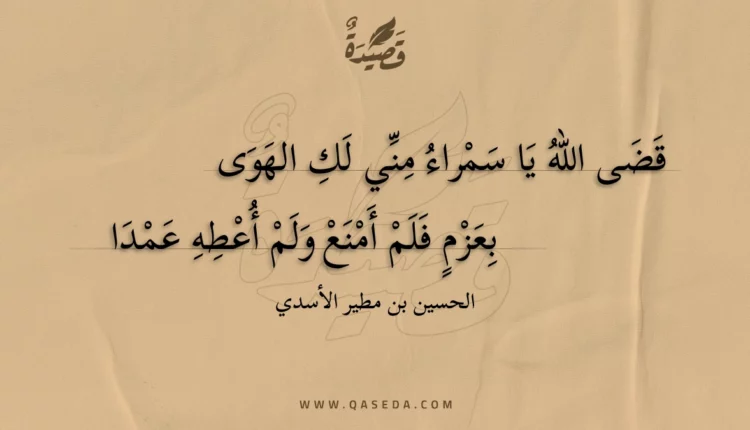 قَصِيْدَةٌ
قَضَى اللهُ يَا سَمْراءُ مِنِّي لَكِ الهَوَى
بِعَزْمٍ فَلَمْ أَمْنَعْ وَلَمْ أُعْطِهِ عَمْدَا
الحسين بن مطير الأسدي
WWW.QASEDA.COM